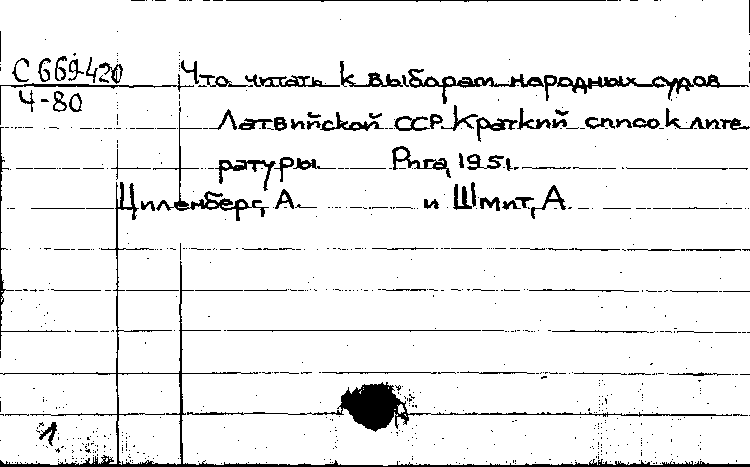 С 669-420 Что читать к выборам народных судов
Ч-80
Латвийской ССР. Краткий список лите
ратуры. Рига, 1951.
Циленберг, А. и Шмит, А.
1